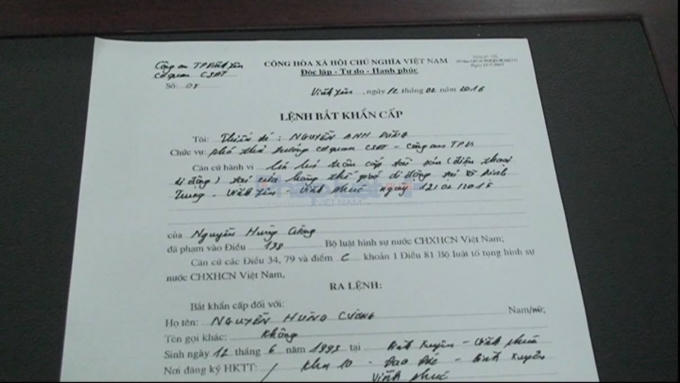 Công an TP Vĩnh Yên
Cơ quan CSĐT
Số: 08
CỘNG HÒA XÃ HỘI CHỦ NGHĨA VIỆT NAM
Độc lập - Tự do - Hạnh phúc
Vĩnh Yên, ngày 12 tháng 02 năm 2015
LỆNH BẮT KHẨN CẤP
Tôi: Thiếu tá: NGUYỄN ANH
Chức vụ: phó thủ trưởng cơ quan CSĐT - Công an TPVY
Căn cứ hành vi trộm cấp tài sản (điện thoại
di động) tại cửa hàng thế giới di động tại xã Định
Trung - Vĩnh Yên - Vĩnh phúc ngày 12/02/2015
VIỆT NAM
của Nguyễn Hùng Cường
đã phạm vào Điều 138 Bộ luật hình sự nước CHXHCN Việt Nam;
Căn cứ các Điều 34, 79 và điểm C khoản 1 Điều 81 Bộ luật tố tụng hình sự
nước CHXHCN Việt Nam,
RA LỆNH:
Bắt khẩn cấp đối với:
Họ tên: NGUYỄN HÙNG CƯỜNG Nam/nữ;
Tên gọi khác: Không
Sinh ngày 12 tháng 6 năm 1998 tại Bình Xuyên - Vĩnh phúc
Nơi đăng ký HKTT: Khu 10 - Đạo Đức - Bình Xuyên
Vĩnh phúc